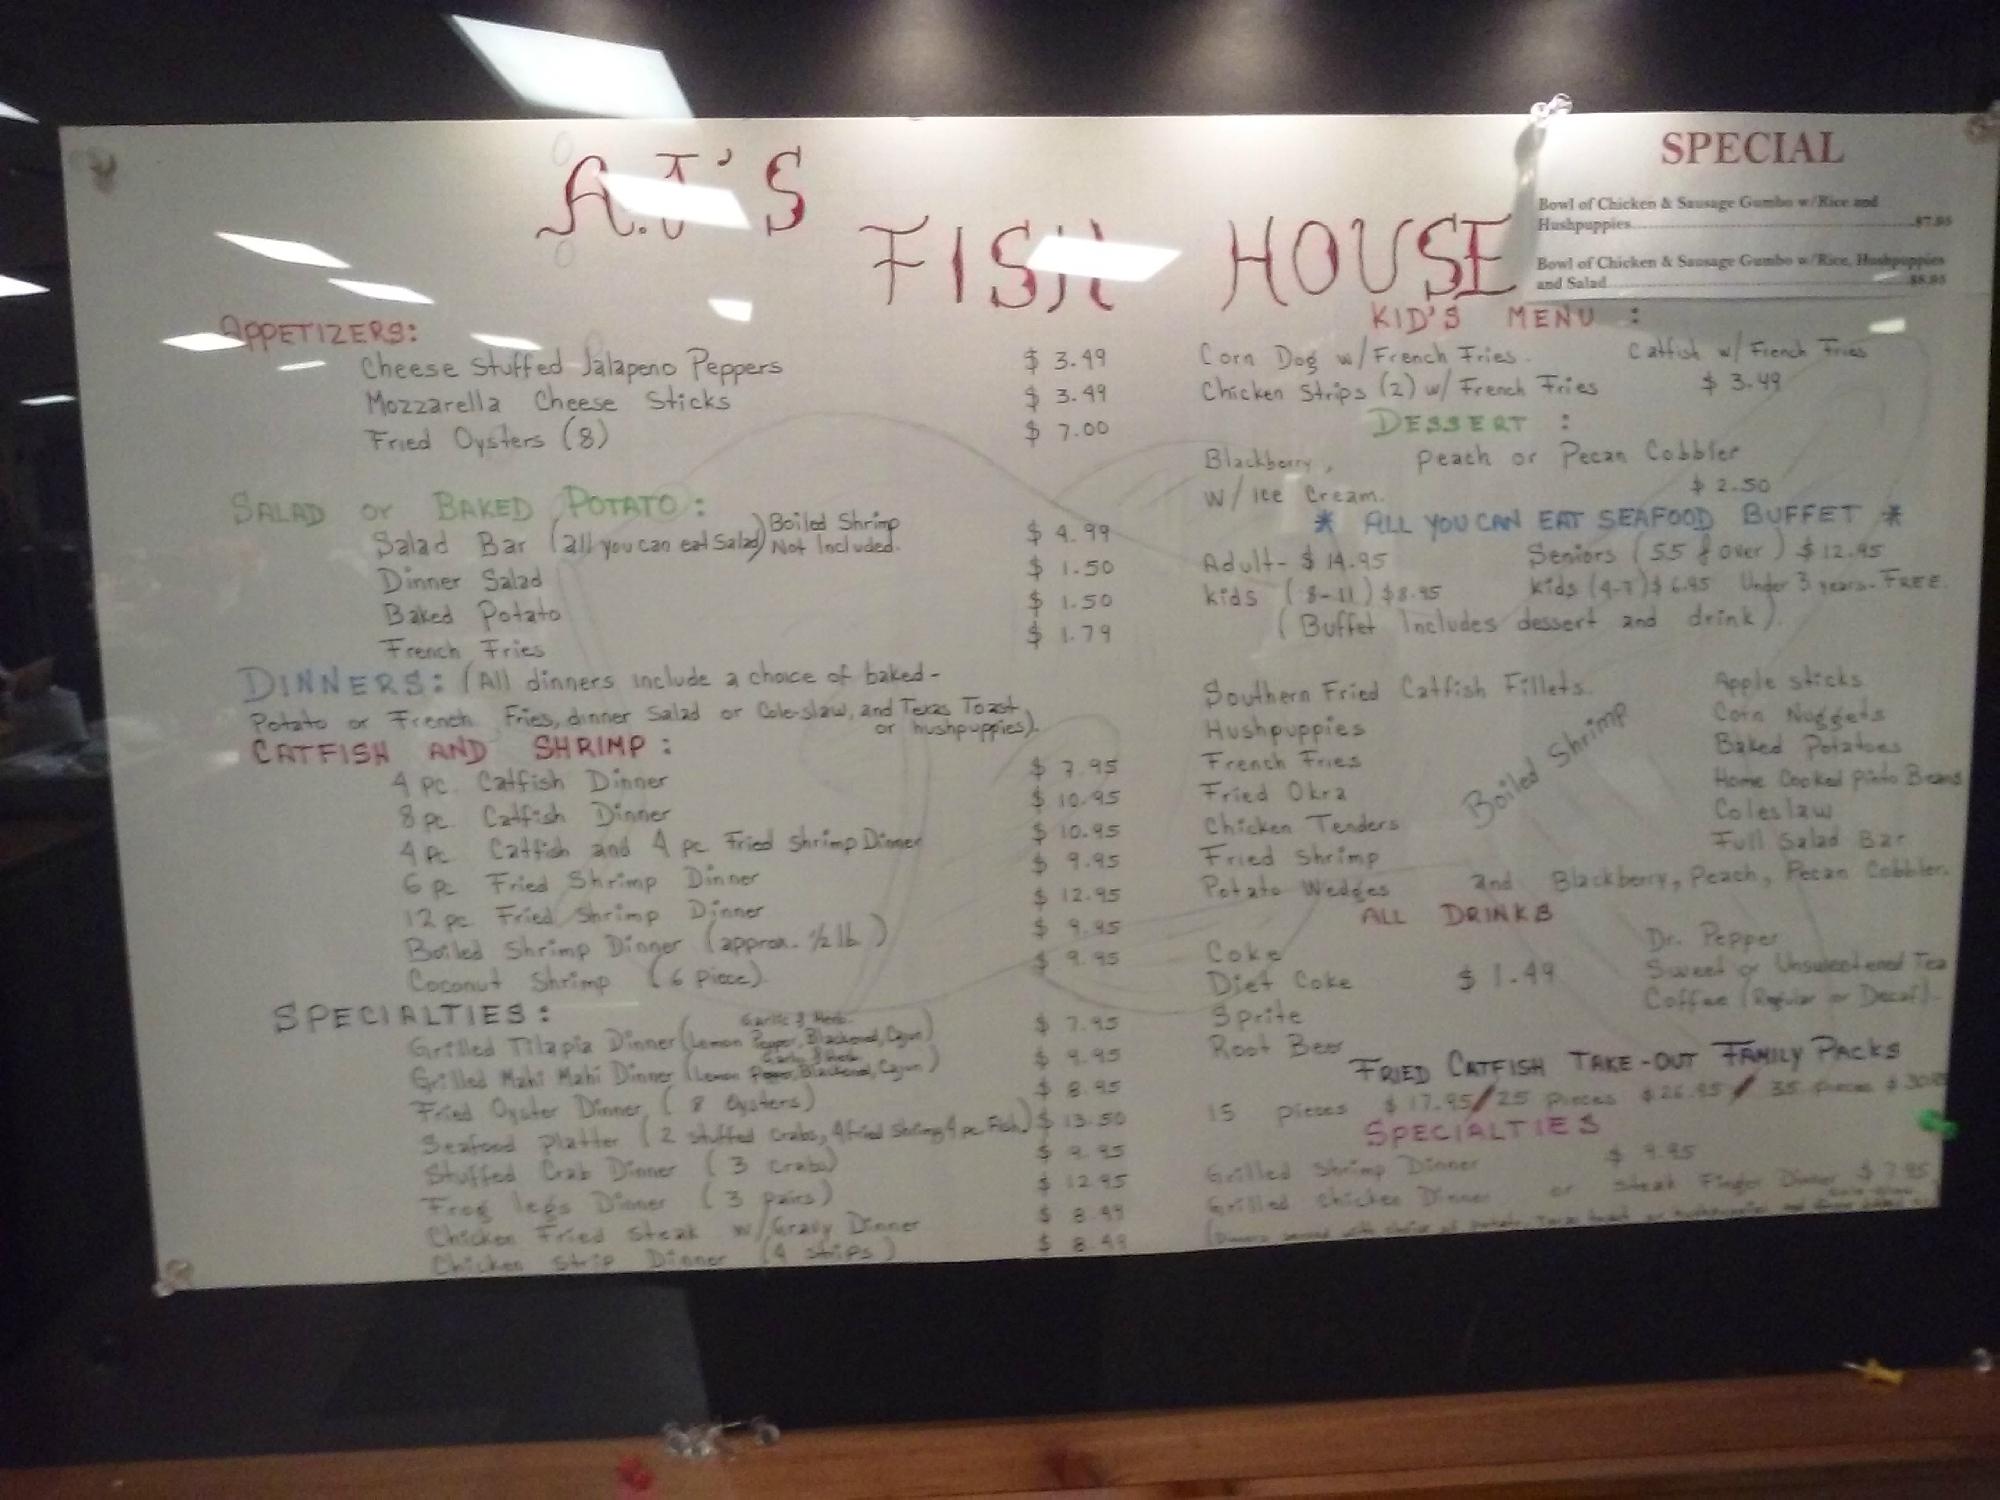 A.J'S
FISH HOUSE
SPECIAL
Bowl of Chicken & Sausage Gumbo w/Rice and
Hushpuppies..............$7.95
Bowl of Chicken & Sausage Gumbo w/Rice, Hushpuppies
and Salad..............$8.95
APPETIZERS:
Cheese Stuffed Jalapeno Peppers $ 3.49
Mozzarella Cheese Sticks $ 3.49
Fried Oysters (8) $ 7.00
SALAD or BAKED POTATO:
Salad Bar (all you can eat Salad) Boiled Shrimp Not Included. $ 4.99
Dinner Salad $ 1.50
Baked Potato $ 1.50
French Fries $ 1.79
DINNERS: (All dinners include a choice of baked-
Potato or French Fries, dinner Salad or Cole-slaw, and Texas Toast
or hushpuppies).
CATFISH AND SHRIMP:
4 pc. Catfish Dinner $ 7.95
8 pc. Catfish Dinner $ 10.95
4 Pc. Catfish and 4 pc Fried Shrimp Dinner $ 10.95
6 pc Fried Shrimp Dinner $ 9.95
12 pc Fried Shrimp Dinner $ 12.95
Boiled Shrimp Dinner (approx. 1/2 lb) $ 9.95
Coconut Shrimp (6 piece). $ 9.95
SPECIALTIES:
Grilled Tilapia Dinner (Garlic & Herb Lemon Pepper, Blackened, Cajun) $ 7.95
Grilled Mahi Mahi Dinner (Garlic & Herb Lemon Pepper, Blackened, Cajun) $ 9.95
Fried Oyster Dinner (8 Oysters) $ 8.95
Seafood platter (2 stuffed crabs, 4 fried shrimp, 4 pc. Fish) $ 13.50
Stuffed Crab Dinner (3 crabs) $ 9.95
Frog legs Dinner (3 pairs) $ 12.95
Chicken Fried Steak w/Gravy Dinner $ 8.49
Chicken Strip Dinner (4 strips) $ 8.49
KID'S MENU:
Corn Dog w/French Fries. Catfish w/ French Fries
Chicken Strips (2) w/ French Fries $ 3.49
DESSERT:
Blackberry, Peach or Pecan Cobbler
w/ Ice Cream. $ 2.50
* ALL YOU CAN EAT SEAFOOD BUFFET *
Adult- $ 14.95 Seniors (55 & over) $ 12.95
kids (8-11) $8.95 kids (4-7) $ 6.95 Under 3 years - FREE.
(Buffet Includes dessert and drink).
Southern Fried Catfish Fillets. Apple sticks
Hushpuppies Corn Nuggets
French Fries Baked Potatoes
Fried Okra Home Cooked Pinto Beans
Boiled Shrimp
Chicken Tenders Coleslaw
Fried Shrimp Full Salad Bar
Potato Wedges and Blackberry, Peach, Pecan Cobbler.
ALL DRINKS
Coke Dr. Pepper
Diet Coke $ 1.49 Sweet or Unsweetened Tea
Sprite Coffee (Regular or Decaf).
Root Beer
FRIED CATFISH TAKE-OUT FAMILY PACKS
15 pieces $ 17.95 / 25 pieces $ 26.95 / 35 pieces
SPECIALTIES
Grilled Shrimp Dinner $ 9.95
Grilled Chicken Dinner or Steak Finger Dinner $ 7.95
(Dinners served with choice of potato, Texas toast or hushpuppies and